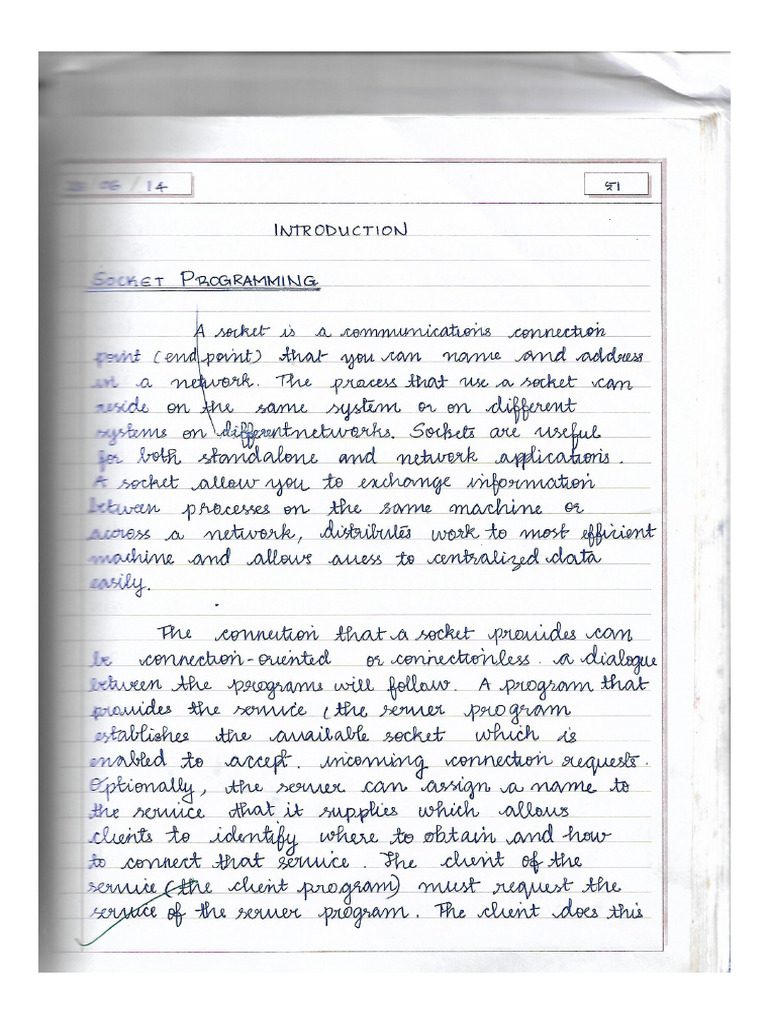 06/14
51
INTRODUCTION
SOCKET PROGRAMMING
A socket is a communications connection
point (end point) that you can name and address
in a network. The process that use a socket can
reside on the same system or on different
systems on different networks. Sockets are useful
for both standalone and network applications.
A socket allow you to exchange information
between processes on the same machine or
across a network, distributes work to most efficient
machine and allows access to centralized data
easily.
The connection that a socket provides can
be connection-oriented or connectionless. a dialogue
between the programs will follow. A program that
provides the service (the server program
establishes the available socket which is
enabled to accept. incoming connection requests.
Optionally, the server can assign a name to
the service that it supplies which allows
clients to identify where to obtain and how
to connect that service. The client of the
service (the client program) must request the
service of the server program. The client does this